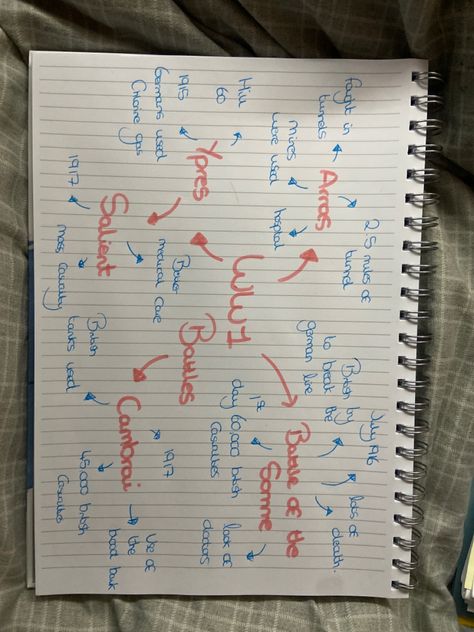 fought in
tunnels
2.5 miles of
tunnel
Arras
mines
were used
hospital
July 1916
British try
to break the
german line
lots of
death.
Battle of the
Somme
1st
day 60,000 british
casualties
doctors
WW1
Battles
Hill
60
Ypres
1915
Germans used
Chlorine gas
Better
medical care
Salient
1917
most casualty
Cambrai
1917
British
tanks used
45,000 british
casualties
Use of
the
blood bank